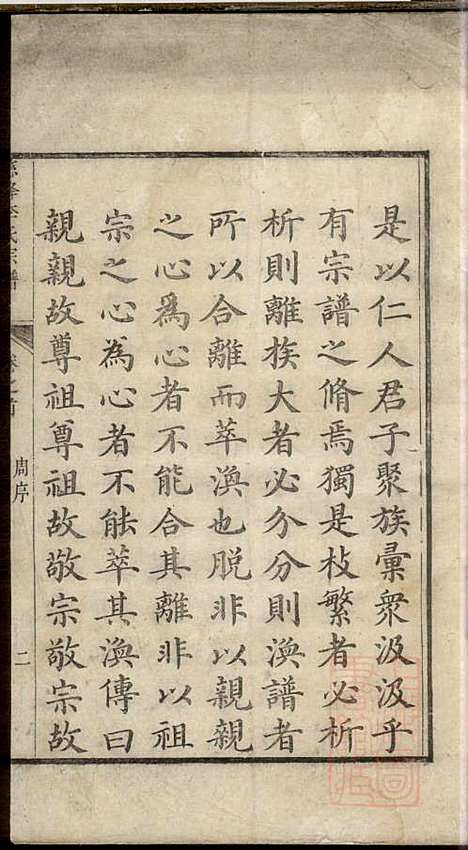 是以仁人君子聚族彙衆汲汲乎
有宗譜之脩焉獨是枝繁者必析
析則離族大者必分分則渙譜者
所以合離而萃渙也脫非以親親
之心為心者不能合其離非以祖
宗之心為心者不能萃其渙傳曰
親親故尊祖尊祖故敬宗敬宗故
氏宗譜
卷之首
周序
二